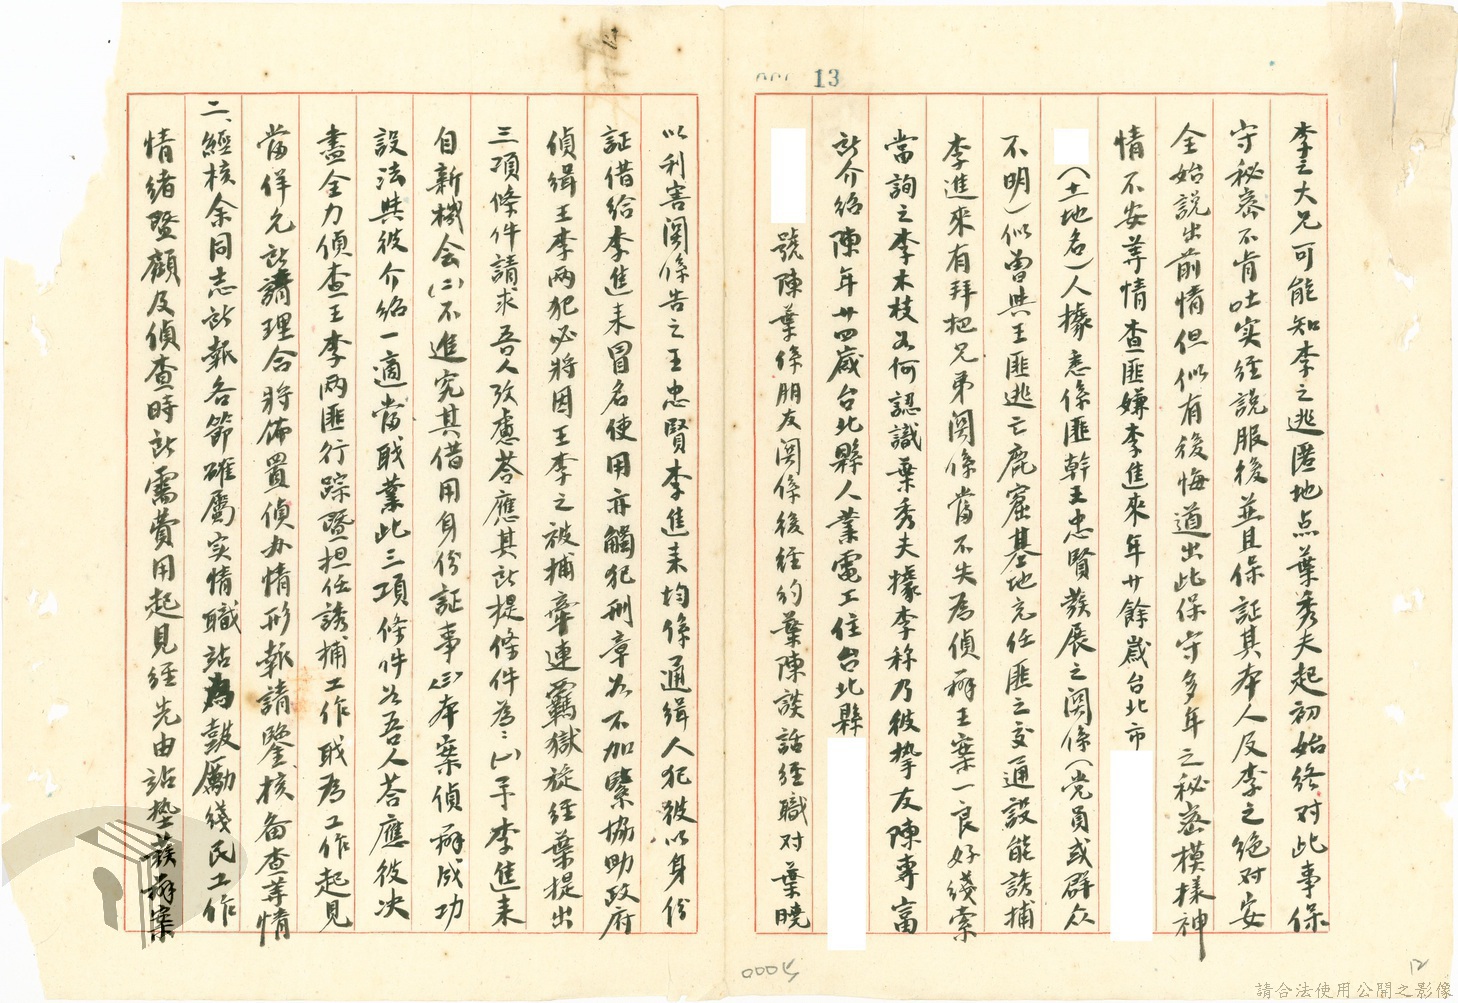 13
李三大兄可能知李之逃匿地点葉秀夫起初始終对此事保
守秘密不肯吐实経説服後並且保証其本人及李之絶対安
全始説出前情但似有後悔道出此保守多年之秘密模樣神
情不安等情查匪嫌李進來年廿餘歲台北市
(土地名)人據悉係匪幹王忠賢發展之関係(党員或群众
不明)似曽與王匪逃亡鹿窟基地充任匪之交通設能誘捕
李進來有拜把兄弟関係當不失為偵辦王案一良好綫索
當詢之李木枝如何認識葉秀夫據李称乃彼摯友陳專富
所介紹陳年廿四歲台北縣人業電工住台北縣
號陳葉係朋友関係後経約葉陳談話経職对葉曉
以利害関係告之王忠賢李進来均係通緝人犯彼以身份
証借給李進来冒名使用亦觸犯刑章如不加緊協助政府
偵緝王李両犯必將因王李之被捕牽連羈獄旋経葉提出
三項條件請求吾人攷慮荅應其所提條件為:(一)予李進来
自新機会(二)不追究其借用身份証事(三)本案偵辦成功
設法與彼介紹一適當戝業此三項條件如吾人荅應彼决
盡全力偵查王李両匪行踪暨担任誘捕工作戝為工作起見
當佯允所請理合將佈置偵办情形報請鑒核备查等情
二、經核余同志所報各節確屬实情職站為鼓勵綫民工作
情緒暨顧及偵查時所需費用起見経先由站墊發辦案
12
請合法使用公開之影像